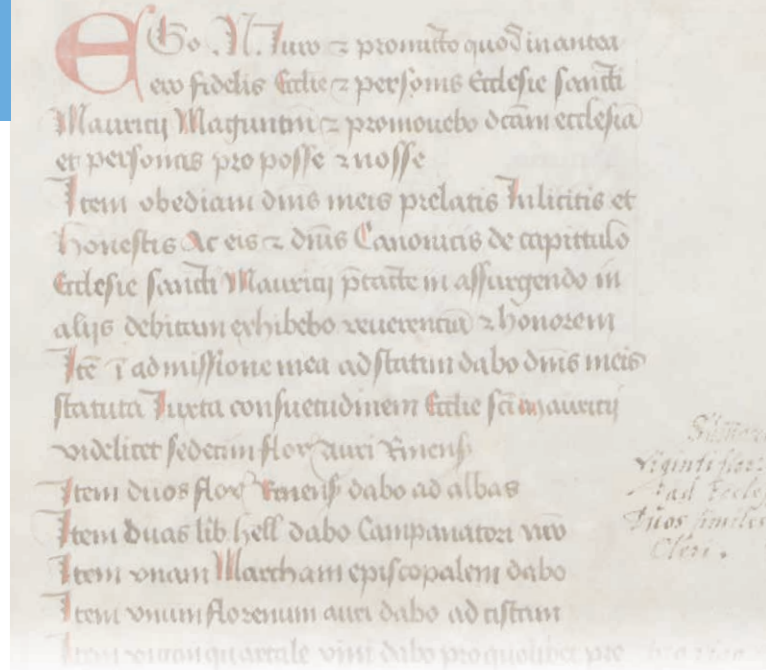 EGo .N. Iuro ⁊ promitto quod inantea
ero fidelis Ecclie ⁊ personis Ecclesie sancti
Mauricij Maguntini ⁊ promouebo dcam ecclesia
et personas pro posse ⁊ nosse
Item obediam dnis meis prelatis In licitis et
honestis Ac eis ⁊ dnis Canonicis de capittulo
Ecclesie sancti Mauricij in assurgendo in
alijs debitam exhibebo reuerentia ⁊ honorem
Ite i admissione mea ad statum dabo dnis meis
statuta Iuxta consuetudinem Ecclie sci mauricij
videlicet sedecim flor auri Rinens
Item duos flor Renens dabo ad albas
Item duas lib hell dabo Campanatori
Item vnam Marcham episcopalem dabo
Item vnum florenum auri dabo ad cistam
Item vnum quartale vini dabo pro quolibet
viginti flor
ad Eccle
Duos similes
Cleri .